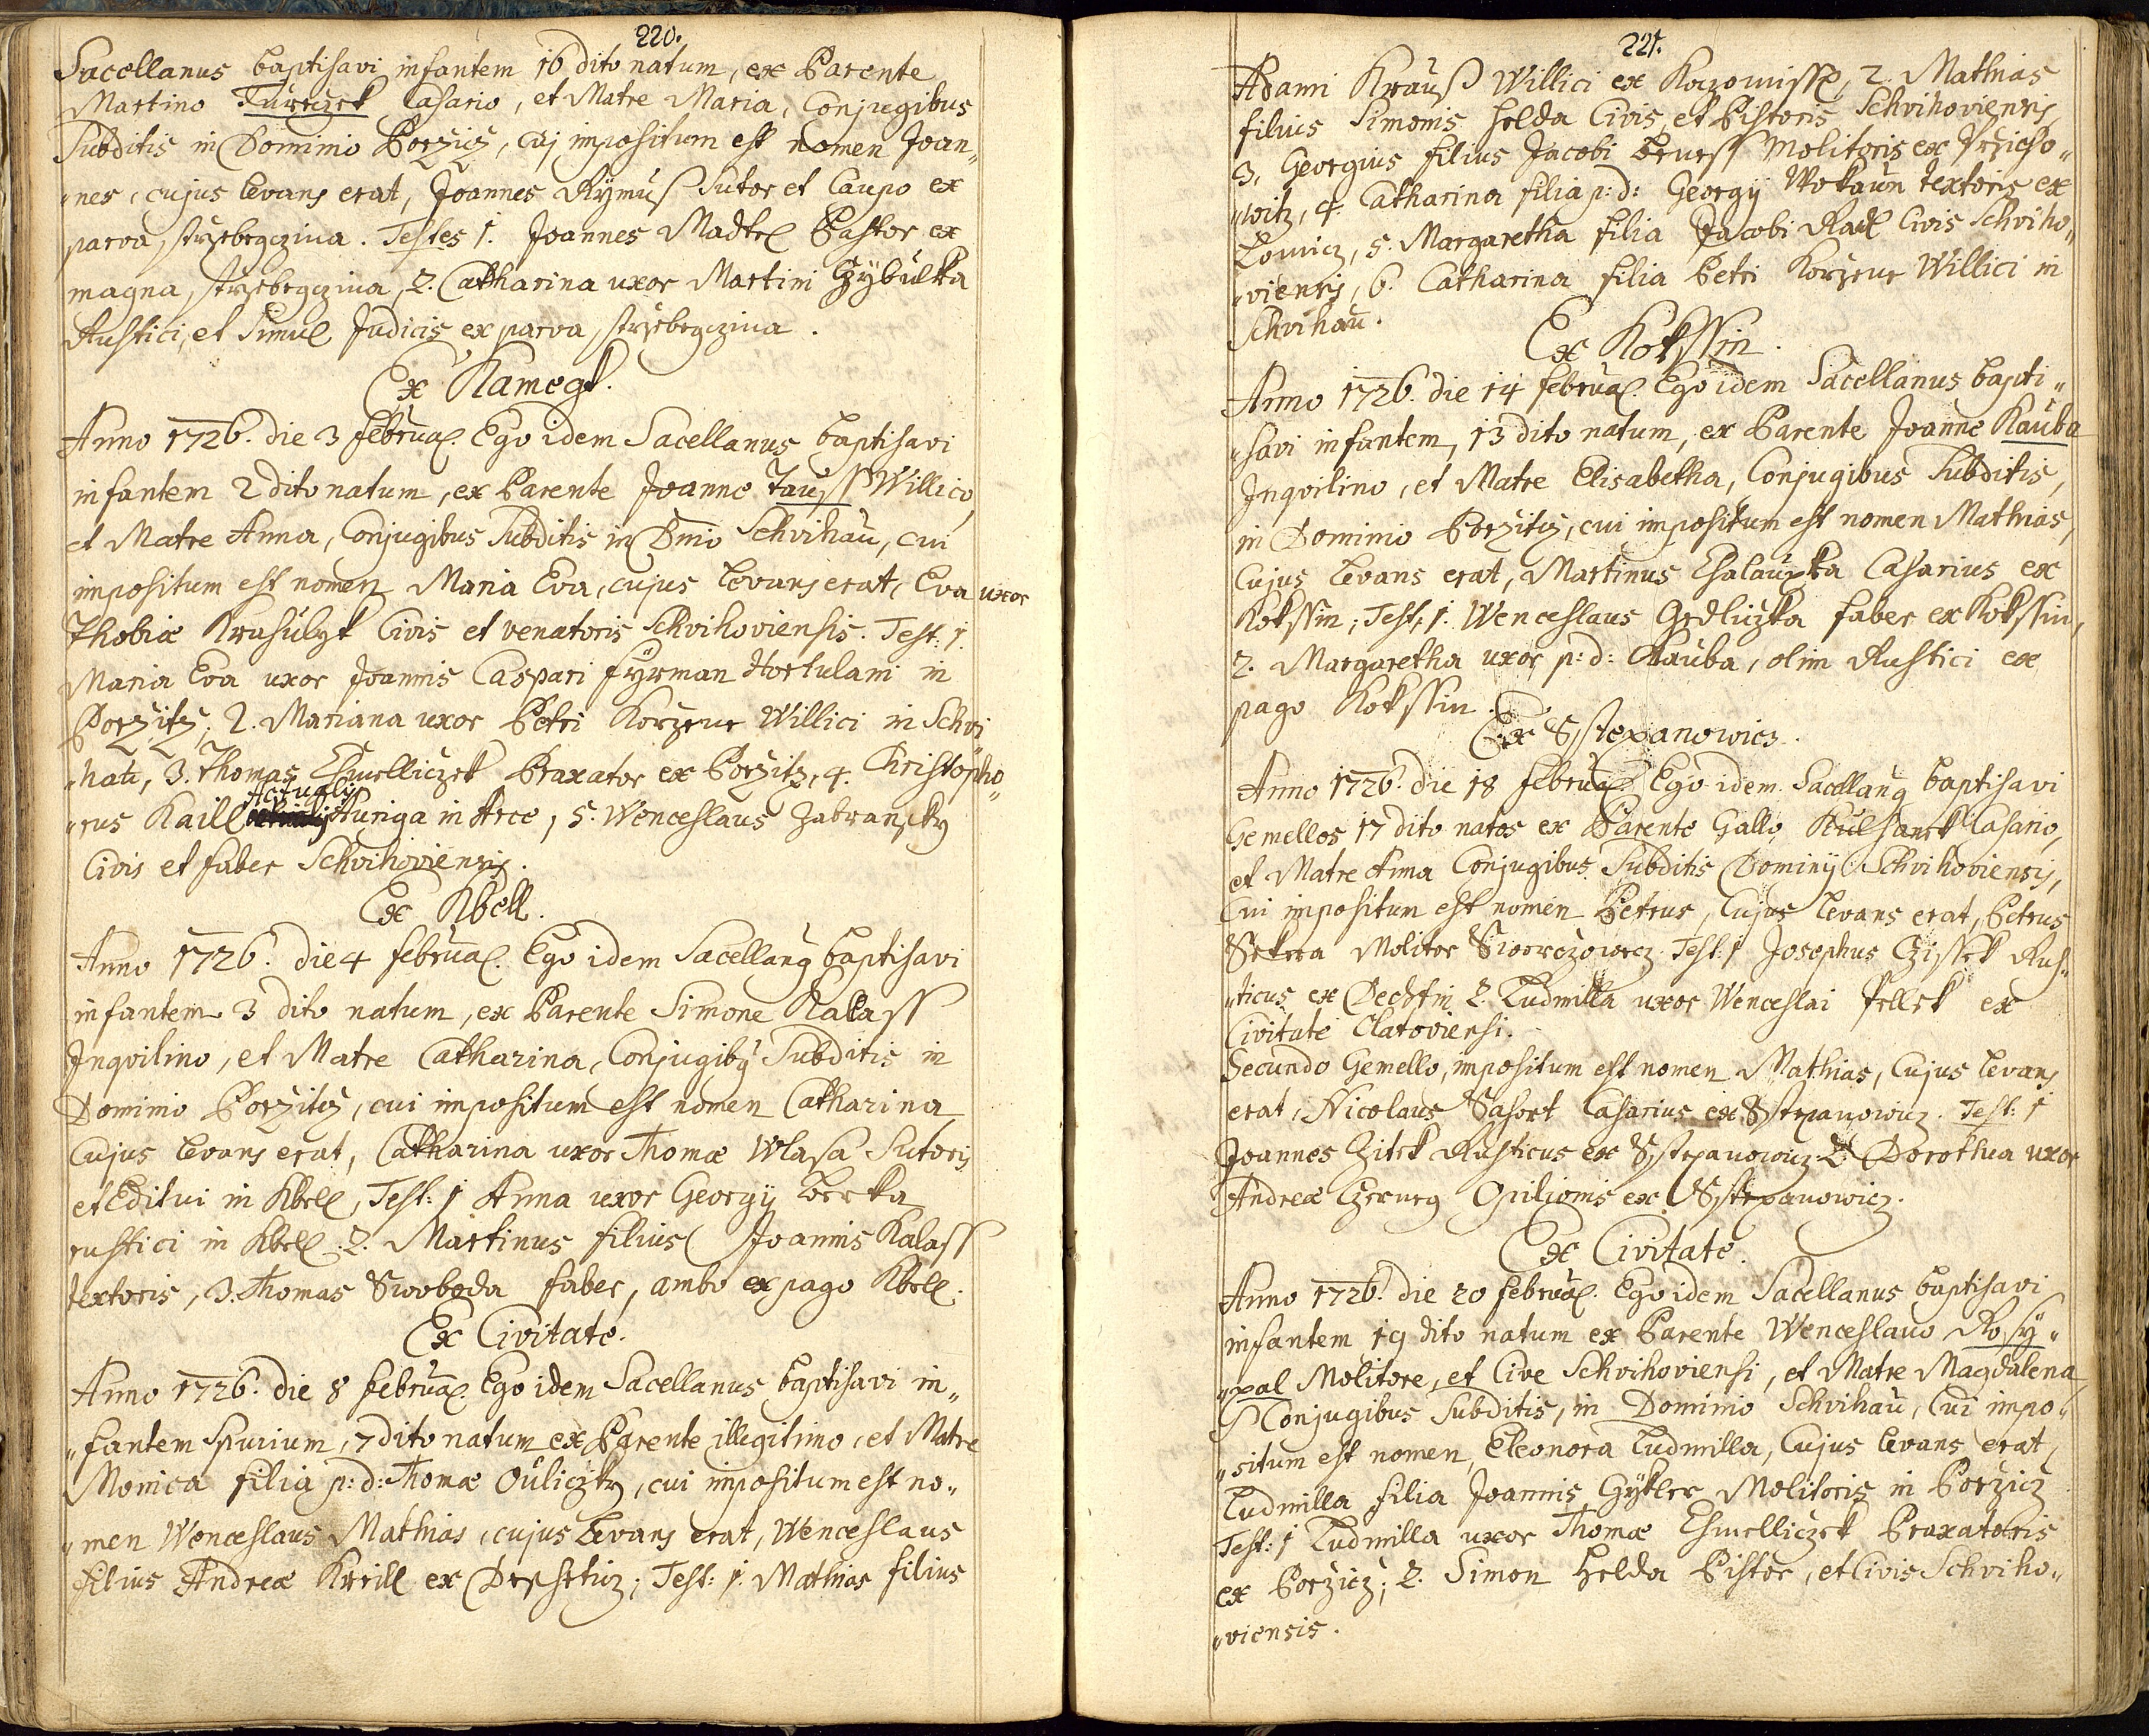 220.
Sacellanus baptisavi infantem 16 dito natum, ex Parente
Martino Tureczek Casario, et Matre Maria, Conjugibus
Subditis in Dominio Porzicz, cuj impositum est nomen Joan„
„nes, cujus levans erat, Joannes Rÿmuß Sutor et Caupo ex
parva, strzebegczina. Testes 1. Joannes Madtl Pastor ex
magna, strzebegczina, 2. Catharina uxor Martini Czÿbulka
Rustici, et simul Judicis ex parva, strzebegczina.
Ex Kamegk.
Anno 1726. die 3 februa. Ego idem Sacellanus baptisavi
infantem 2 dito natum, ex Parente Joanne Tauss Willico,
et Matre Anna, Conjugibus Subditis in Dnio Schvihau, cui
impositum est nomen Maria Eva, cujus levans erat, Eva uxor
Thobiæ Civis et venatoris Schvihoviensis. Test: 1.
Maria Eva uxor Joannis Caspari Fÿrman Hortulani in
Porzitz, 2. Mariana uxor Petri Korzene Willici in Schvi
„hau, 3. Thomas Chmelliczek Praxator ex Porzitz, 4. Christopho„
Actualis
„rus Kaill Auriga in Arce, 5. Wenceslaus Zabransky
Civis et faber Schvihoviensis.
Ex Kbell.
Anno 1726. die 4 februa. Ego idem Sacellang baptisavi
infantem 3 dito natum, ex Parente Simone Kalass
Inqvilino, et Matre Catharina, Conjugibg Subditis in
Dominio Porzitz, cui impositum est nomen Catharina
Cujus levans erat, Catharina uxor Thomæ Wlasa Sutoris
et Editui in Kbell, Test: 1 Anna uxor Georgÿ Berka
rustici in Kbell. 2. Martinus filius Joannis Kalass
textoris, 3. Thomas Swoboda faber, ambo ex pago Kbell.
Ex Civitate.
Anno 1726. die 8 februa. Ego idem Sacellanus baptisavi in„
„fantem Spurium, 7 dito natum ex Parente illegitimo, et Matre
Monica filia p: d: Thomæ Ouliczky, cui impositum est no„
„men Wenceslaus Mathias, cujus levans erat, Wenceslaus
filius Andreæ Kreill ex Test: 1. Mathias filius
221.
Adami Krauß Willici ex 2. Mathias
filius Simonis Helda Civis, et Pistoris Schvihoviensis,
3, Georgius filius Jacobi Molitoris ex Przicho„
„witz, 4. Catharina filia p: d: Georgÿ Wokaun textoris ex
5. Margaretha filia Jacobi Civis Schviho„
„viensis, 6. Catharina filia Petri Korzene Willici in
Schvihau.
Ex Kokssin.
Anno 1726. die 14 februa. Ego idem Sacellanus bapti„
„savi infantem, 13 dito natum, ex Parente Joanne Kauba
Jnqvilino, et Matre Elisabetha, Conjugibus Subditis,
in Dominio Porzitz, cui impositum est nomen Mathias,
Cujus levans erat, Martinus Chalaupka Casarius ex
Kokssin; Test: 1. Wenceslaus Gedliczka faber ex Kokssin,
2. Margaretha uxor p: d: Kauba, olim Rustici ex
pago Kokssin.
Ex Sstepanowicz.
Anno 1726. die 18 februa. Ego idem Sacellang baptisavi
Gemellos, 17 dito natos ex Parente Gallo Kulhanek Casario,
et Matre Anna Conjugibus Subditis Dominÿ Schvihoviensis,
Cui impositum est nomen Petrus, Cujus levans erat, Petrus
Sekera Molitor Test: 1 Josephus Czissek Rus„
„ticus ex Dechtin 2. Ludmilla uxor Wenceslai Pellek ex
Civitate Clatoviensi.
Secundo Gemello, impositum est nomen Mathias, Cujus levans
erat, Nicolaus Casarius ex Sstepanowicz. Test: 1
Joannes Zitek Rusticus ex Sstepanowicz. 2. Dorothea uxor
Andreæ Czerney Opilionis ex Sstepanowicz.
Ex Civitate.
Anno 1726. die 20 februa. Ego idem Sacellanus baptisavi
infantem 19 dito natum ex Parente Wenceslauo Rosÿ„
„pal Molitore, et Cive Schvihoviensi, et Matre Magdalena
Conjugibus Subditis, in Dominio Schvihau, Cui impo„
„situm est nomen, Eleonora Ludmilla, Cujus levans erat,
Ludmilla filia Joannis Gÿkler Molitoris in Porzicz
Test: 1 Ludmilla uxor Thomæ Chmelliczek Praxatoris
ex Porzicz; 2. Simon Helda Pistor, et Civis Schviho„
„viensis.